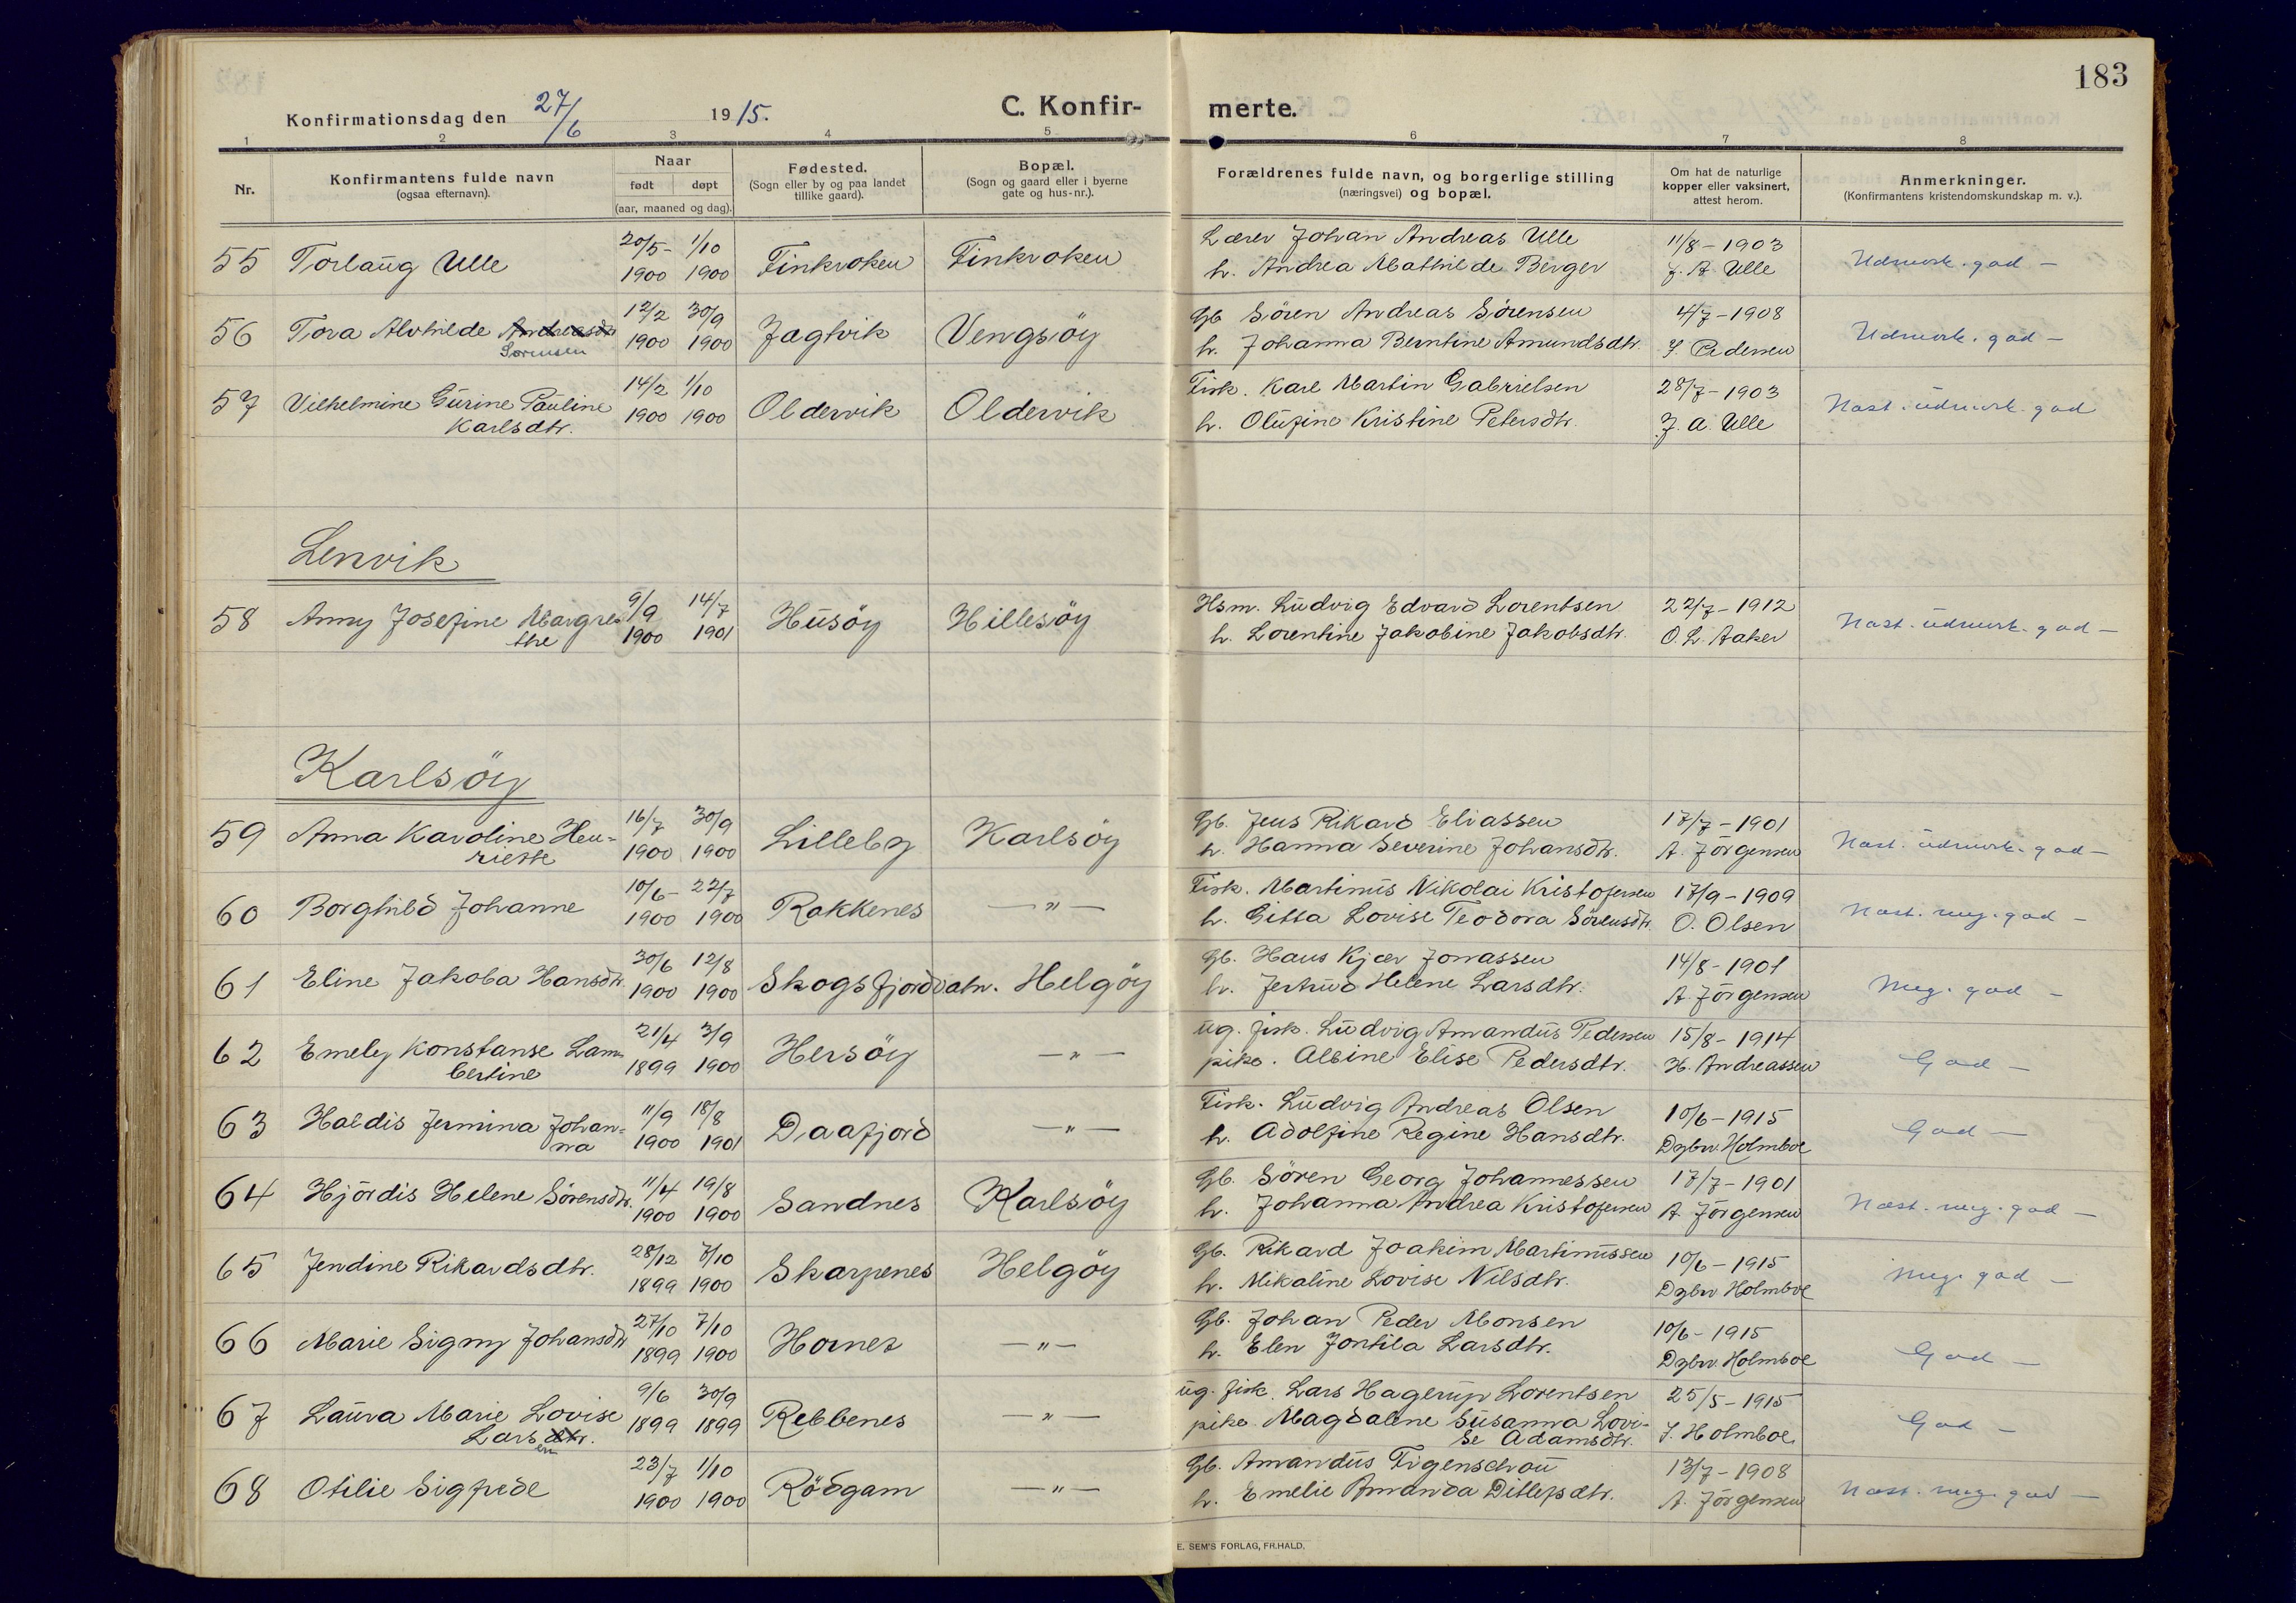 183
Konfirmationsdag den 27/6 1915.
C. Konfirmerte.
1 2 3 4 5 6 7 8
Nr.
Konfirmantens fulde navn
(ogsaa efternavn).
Naar
født døpt
(aar, maaned og dag).
Fødested.
(Sogn eller by og paa landet
tillike gaard).
Bopæl.
(Sogn og gaard eller i byerne
gate og hus-nr.).
Forældrenes fulde navn, og borgerlige stilling
(næringsvei) og bopæl.
Om hat de naturlige
kopper eller vaksinert,
attest herom.
Anmerkninger.
(Konfirmantens kristendomskundskap m. v.).
55 Torlaug Ulle 20/5- 1/10 Finkroken Finkroken Lærer Johan Andreas Ulle 11/8 - 1903 Udmerk. god -
1900 1900 h. Andrea Mathilde Berger J. A. Ulle
56 Tora Alvhilde Andreasdtr 12/2 30/9 Jagtvik Vengsöy Gb Sören Andreas Sörensen 4/7 - 1908 Udmerk. god -
Sorensen 1900 1900 h. Johanna Berntine Amundsdtr. J. Pedersen
57 Vilhelmine Gurine Pauline 14/2 1/10 Oldervik Oldervik Fisk. Karl Martin Gabrielsen 28/7 - 1903 Næst. udmerk. god
Karlsdtr. 1900 1900 h. Olufine Kristine Petersdtr. J. A. Ulle
Lenvik
58 Anny Josefine Margre- 9/9 14/7 Husöy Hillesöy Hsm. Ludvig Edvard Lorentsen 22/7 - 1912 Næst. udmerk. god -
the 1900 1901 h. Lorentine Jakobine Jakobsdtr. O. L. Aaker
Karlsöy
59 Anna Karoline Hen- 16/7 30/9 Lilleby Karlsöy Gb. Jens Rikard Eliassen 17/7 - 1901 Næst. udmerk. god -
riette 1900 1900 h. Hanna Severine Johansdtr. A. Jörgensen
60 Borghild Johanne 10/6- 22/7 Rakkenes - " - Fisk. Martinus Nikolai Kristofersen 17/9 - 1909 Næst. meg. god -
1900 1900 h. Gitta Lovise Teodora Sörensdtr. O. Olsen
61 Eline Jakoba Hansdtr. 30/6 12/8 Skogsfjordvatn. Helgöy Gb. Hans Kjær Jonassen 14/8 - 1901 Meg. god -
1900 1900 h. Jertrud Helene Larsdtr. A. Jörgensen
62 Emely Konstanse Lam- 21/4 3/9 Hersöy - " - ug. fisk. Ludvig Amandus Pedersen 15/8 - 1914 God -
bertine 1899 1900 pike. Albine Elise Pedersdtr. H. Andreassen
63 Haldis Jermina Johan- 11/9 18/8 Daafjord - " - Fisk. Ludvig Andreas Olsen 10/6 - 1915 God -
na 1900 1901 h. Adolfine Regine Hansdtr. Dglw. Holmboe
64 Hjördis Helene Sörensdtr. 11/4 19/8 Sandnes Karlsöy Gb. Sören Georg Johannessen 17/7 - 1901 Næst. meg. god -
1900 1900 h. Johanna Andrea Kristofersen A. Jörgensen
65 Jendine Rikardsdtr. 28/12 7/10 Skarpenes Helgöy Gb. Rikard Joakim Martinussen 10/6 - 1915 Meg. god -
1899 1900 h. Mikaline Lovise Nilsdtr. Dglw. Holmboe
66 Marie Signy Johansdtr 27/10 7/10 Hornes - " - Gb. Johan Peder Monsen 10/6 - 1915 God -
1899 1900 h. Elen Jontila Larsdtr. Dglw. Holmboe
67 Laura Marie Lovise 9/6 30/9 Rebbenes - " - ug. fisk. Lars Hagerup Lorentsen 25/5 - 1915 God -
Larsdtr. 1899 1899 pike. Magdalene Susanna Lovi-
sen se Adamsdtr. J. Holmboe
68 Otilie Sigfrede 23/7 1/10 Rödgam - " - Gb. Amandus Figenschou 13/7 - 1908 Næst. meg. god -
1900 1900 h. Emelie Amanda Ditlefsdtr. A. Jörgensen
E. SEM'S FORLAG, FR.HALD.